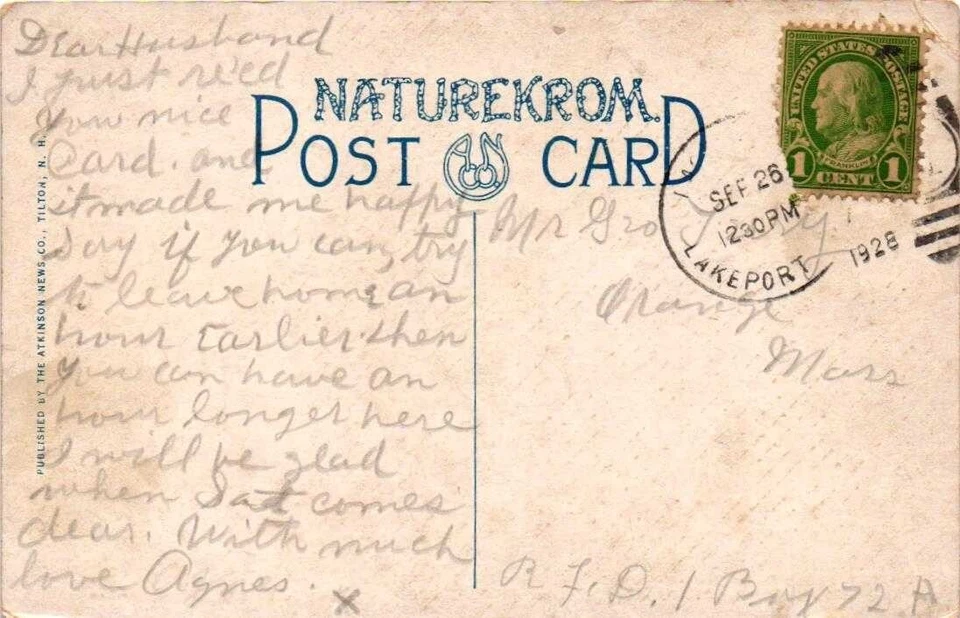 Dear Husband
I just rec'ed
your nice
Card. and
it made me happy
say if you can, try
to leave home an
hour Earlier then
you can have an
hour longer here
I will be glad
when Sat comes
dear. With much
love Agnes.
x
PUBLISHED BY THE ATKINSON NEWS CO., TILTON, N. H.
NATUREKROM
POST CARD
UNITED STATES POSTAGE
FRANKLIN
1 CENT 1
SEP 26
1230 PM
1928
LAKEPORT
Mr Geo
Orange
Mass
R. F. D. 1 Box 72 A